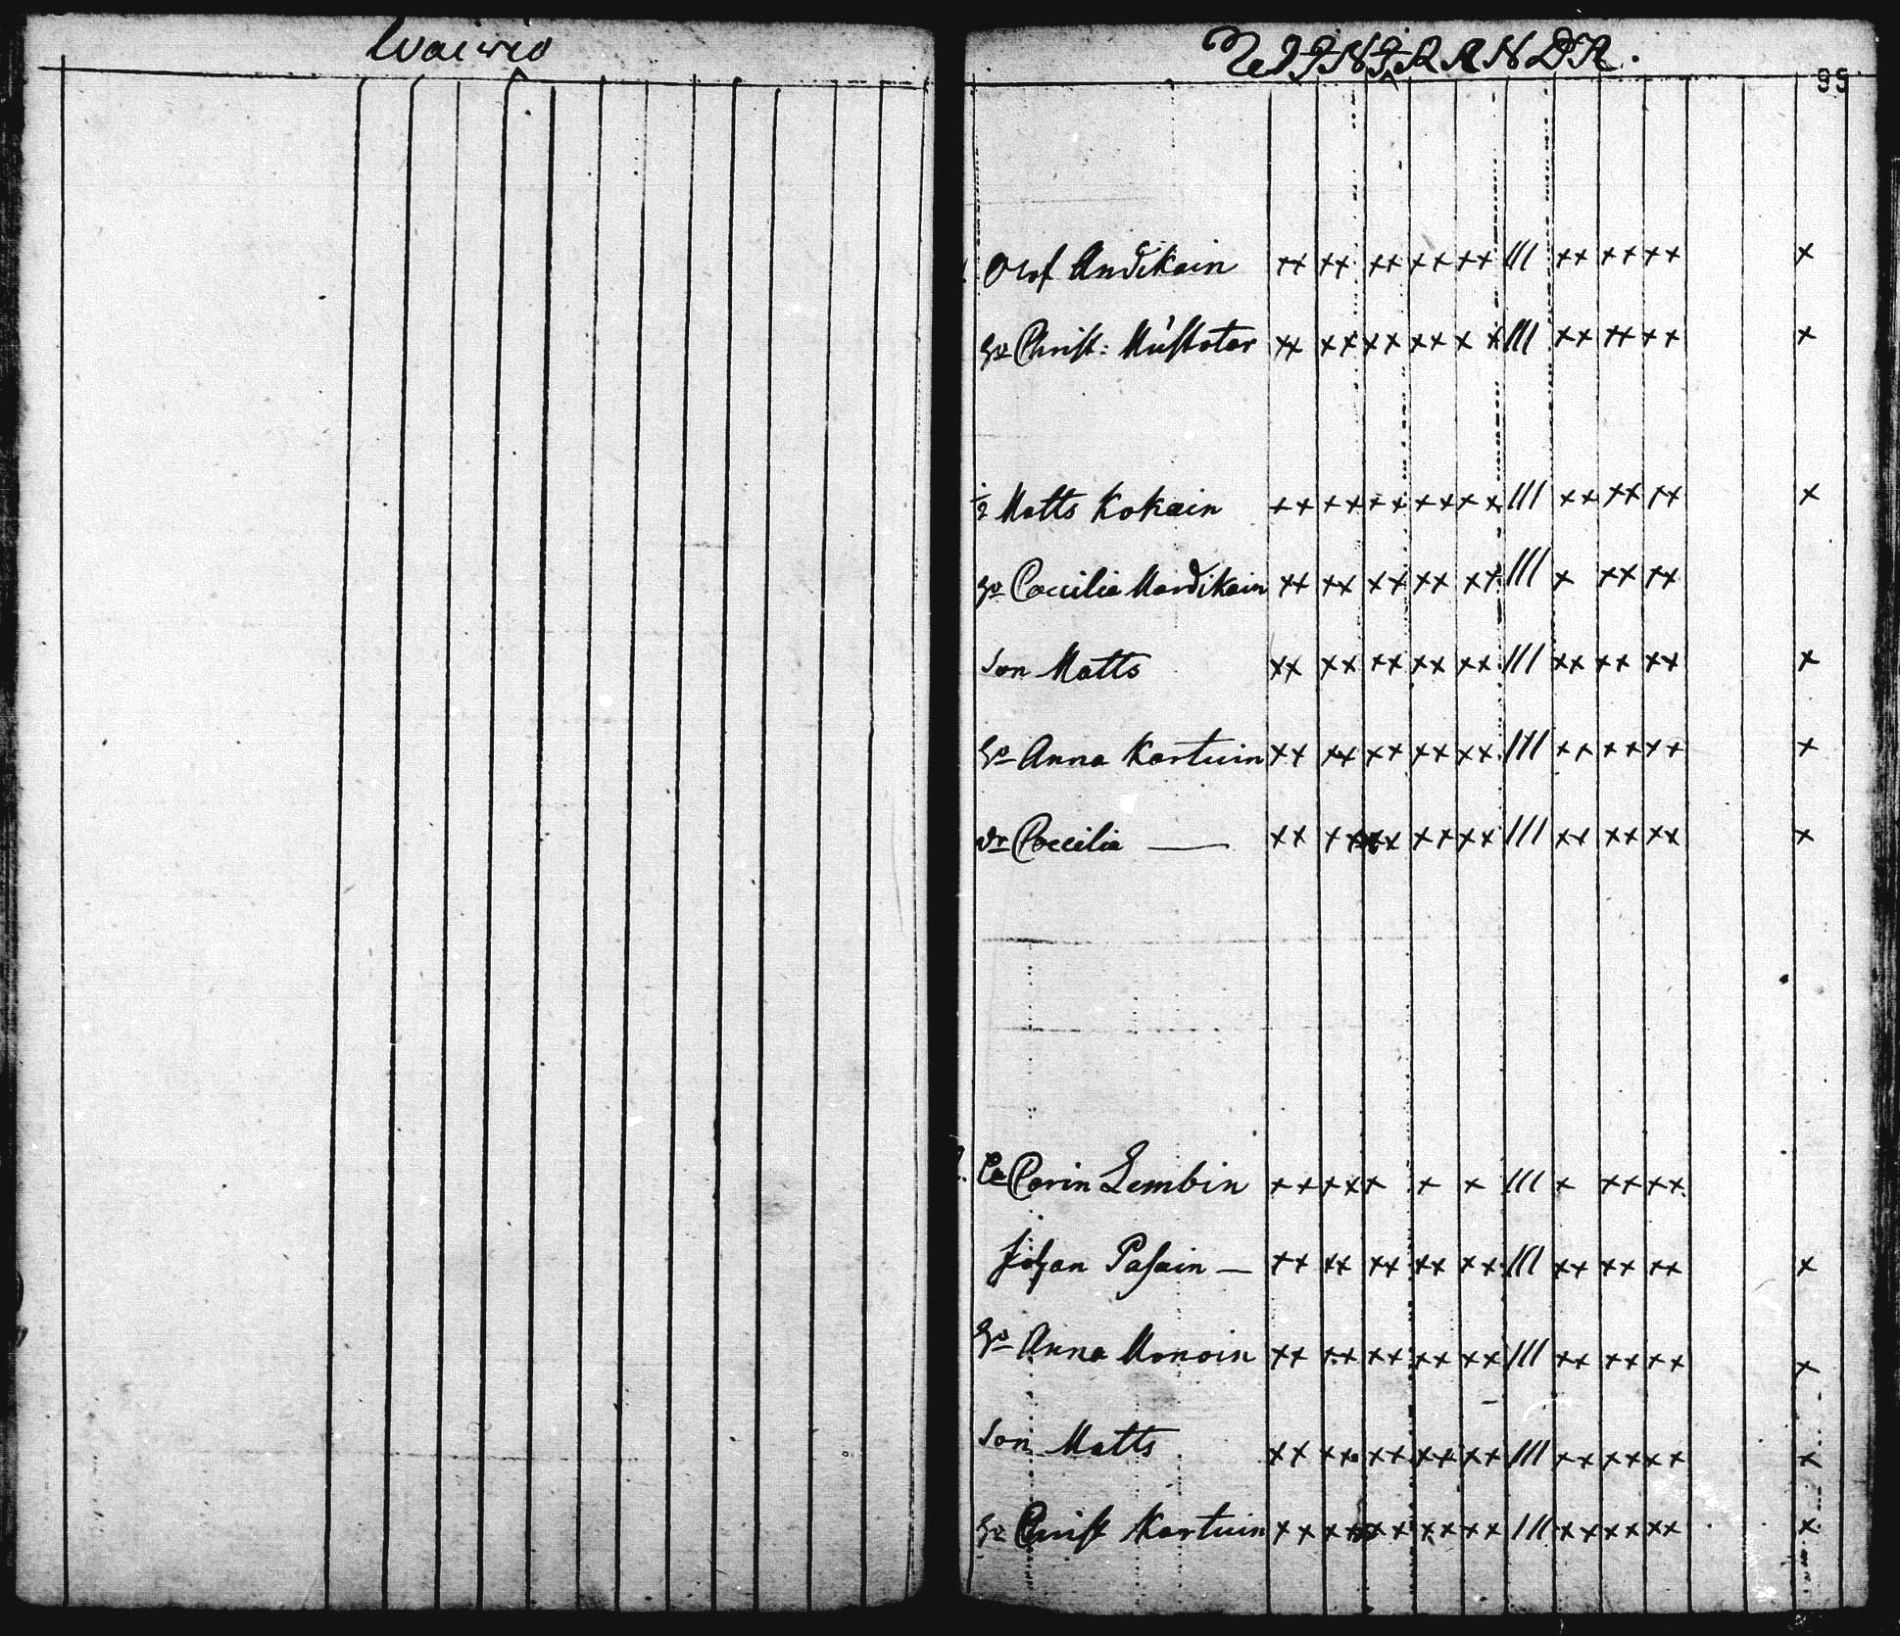 Waiwio
95
Olof Andikain
Hu Christ: Mustotar
1/2 Matts Kokain
Hu Cæcilia Mardikain
Son Matts
Hu Anna Kartuin
Dr Cæcilia —
Ea Carin Lembin
Johan Pasain —
Hu Anna Monoin
Son Matts
Hu Christ Kartuin